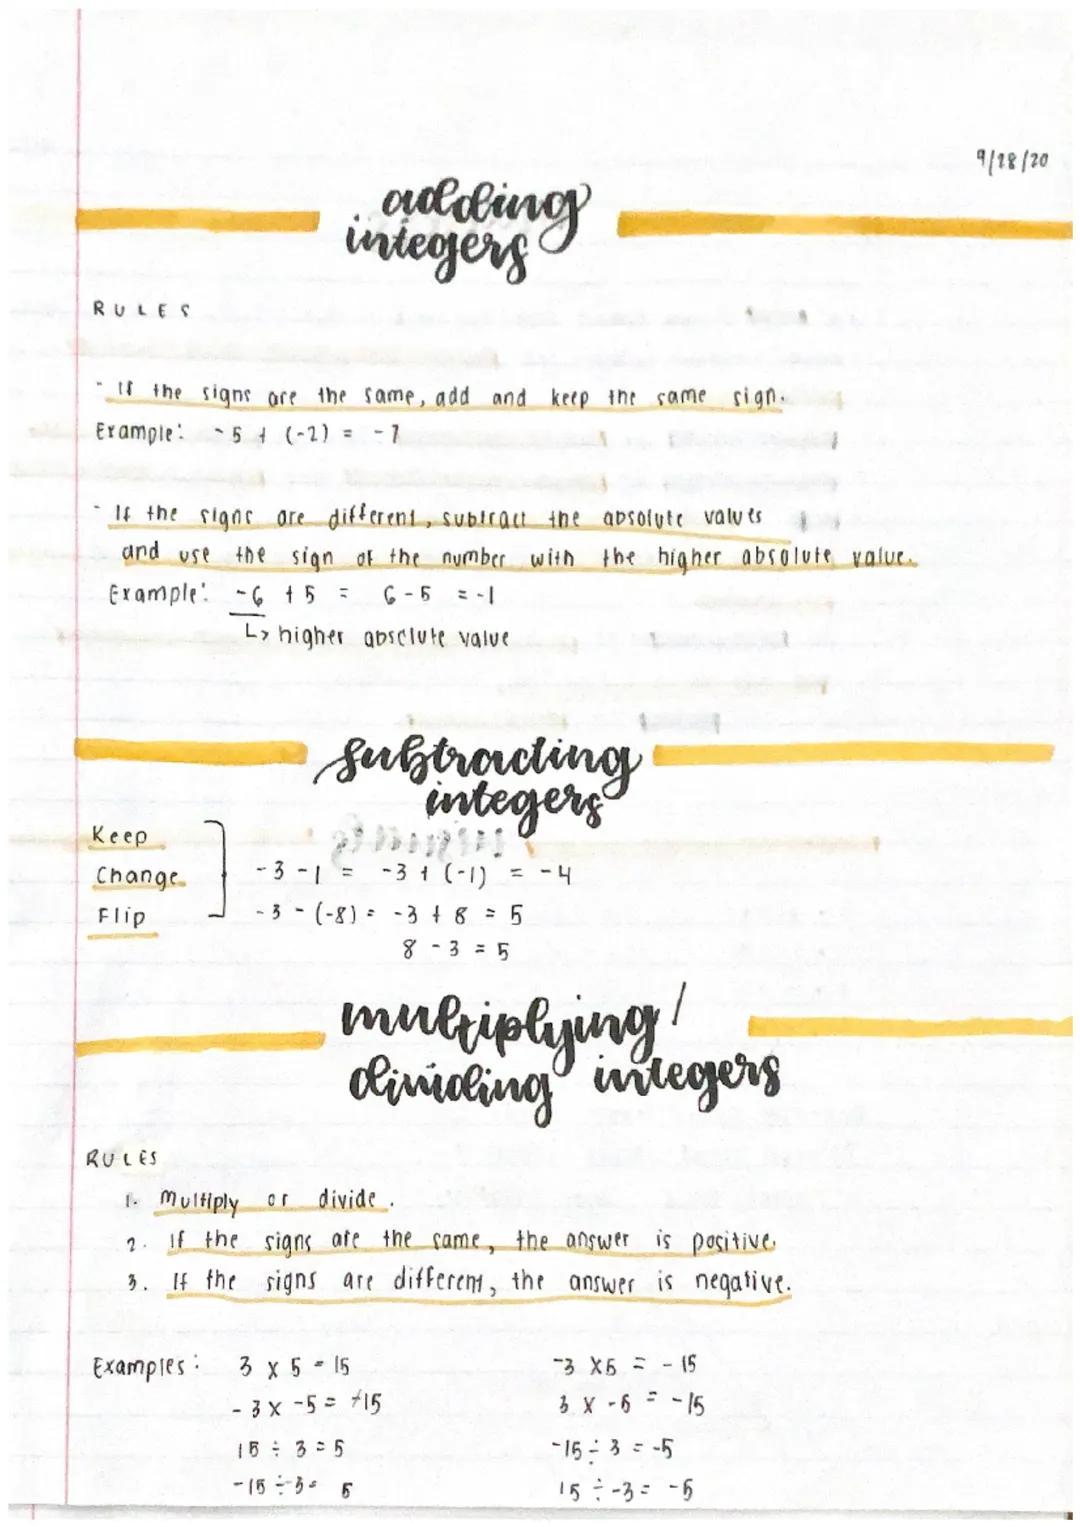 9/28/20
adding
integers
RULES
- If the signs are the same, add and keep the same sign.
Example: -5 + (-2) = -7
- If the signs are different, subtract the absolute values
and use the sign of the number with the higher absolute value.
Example: -6 + 5 = 6 - 5 = -1
↳ higher absolute value
subtracting
integers
Keep
Change
Flip
-3 - 1 = -3 + (-1) = -4
-3 - (-8) = -3 + 8 = 5
8 - 3 = 5
multiplying/
dividing integers
RULES
1. Multiply or divide.
2. If the signs are the same, the answer is positive.
3. If the signs are different, the answer is negative.
Examples: 3 x 5 = 15 -3 x 5 = -15
-3 x -5 = +15 3 x -5 = -15
15 ÷ 3 = 5 -15 ÷ 3 = -5
-15 ÷ -3 = 5 15 ÷ -3 = -5